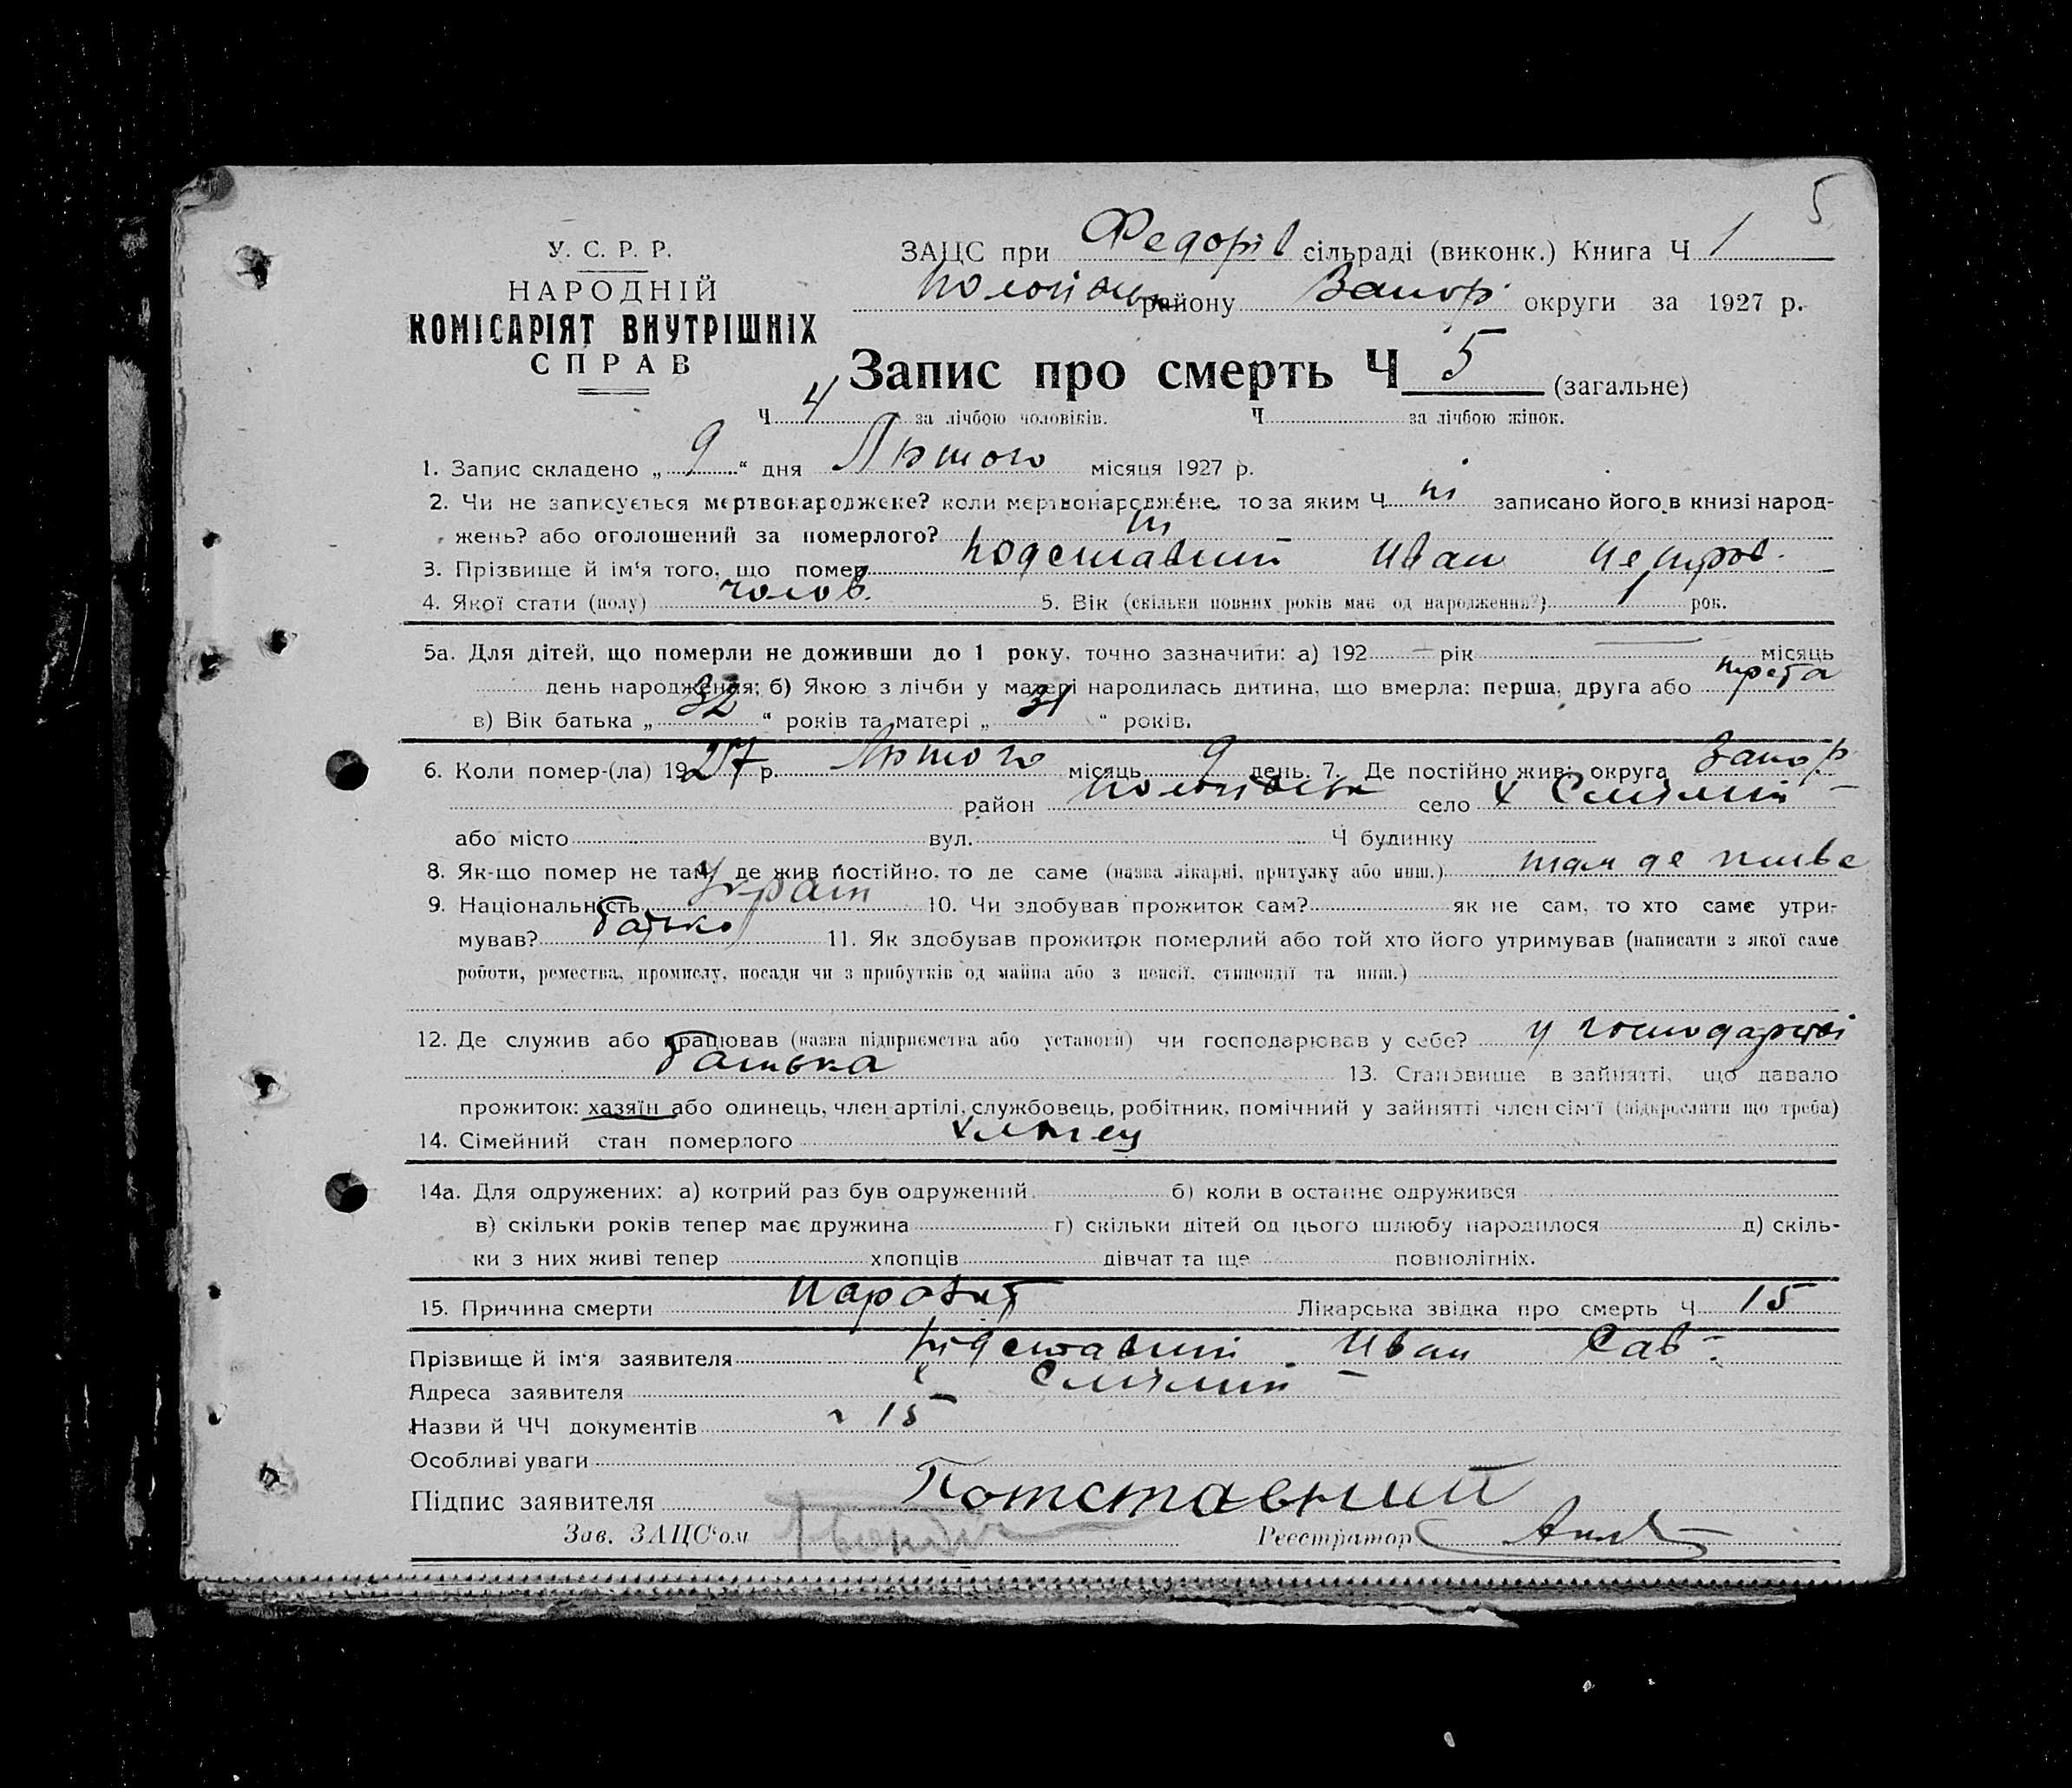 5
У. С. Р. Р.
НАРОДНІЙ
КОМІСАРІЯТ ВНУТРІШНІХ
СПРАВ
ЗАЦС при Федорів сільраді (виконк.) Книга Ч 1
району Запор округи за 1927 р.
Запис про смерть Ч 5 (загальне)
Ч 4 за лічбою чоловіків. Ч за лічбою жінок.
1. Запис складено „ 9 “ дня Лютого місяця 1927 р.
2. Чи не записується мертвонароджене? коли мертвонароджене, то за яким Ч ні записано його в книзі народ-
жень? або оголошений за померлого? ні
3. Прізвище й ім'я того, що помер Подставний Иван Петров.
4. Якої стати (полу) чолов. 5. Вік (скільки повних років має од народження?) 1 рок.
5а. Для дітей, що померли не доживши до 1 року, точно зазначити: а) 192 — рік — місяць
день народження; б) Якою з лічби у матері народилась дитина, що вмерла: перша, друга або трета
в) Вік батька „ 32 “ років та матері „ 31 “ років.
6. Коли помер-(ла) 1927 р. Лютого місяць 9 день. 7. Де постійно жив: округа Запор
район село х
або місто вул. Ч будинку
8. Як-що помер не там, де жив постійно, то де саме (назва лікарні, притулку або инш.) там де живе
9. Національність Украт 10. Чи здобував прожиток сам? як не сам, то хто саме утри-
мував? батько 11. Як здобував прожиток померлий або той хто його утримував (написати з якої саме
роботи, ремества, промислу, посади чи з прибутків од майна або з пенсії, стипендії та инш.)
12. Де служив або працював (назва підприємства або установи) чи господарював у себе? у господарстві
батька 13. Становище в зайнятті, що давало
прожиток: хазяїн або одинець, член артілі, службовець, робітник, помічний у зайнятті член сім'ї (підкреслити що треба)
14. Сімейний стан померлого хлопец
14а. Для одружених: а) котрий раз був одружений б) коли в останнє одружився
в) скільки років тепер має дружина г) скільки дітей од цього шлюбу народилося д) скіль-
ки з них живі тепер хлопців дівчат та ще повнолітніх.
15. Причина смерти Лікарська звідка про смерть Ч 15
Прізвище й ім'я заявителя Підставний Иван Сав
Адреса заявителя х
Назви й ЧЧ документів 15
Особливі уваги
Підпис заявителя Потставний
Зав. ЗАЦС'ом Реєстратор